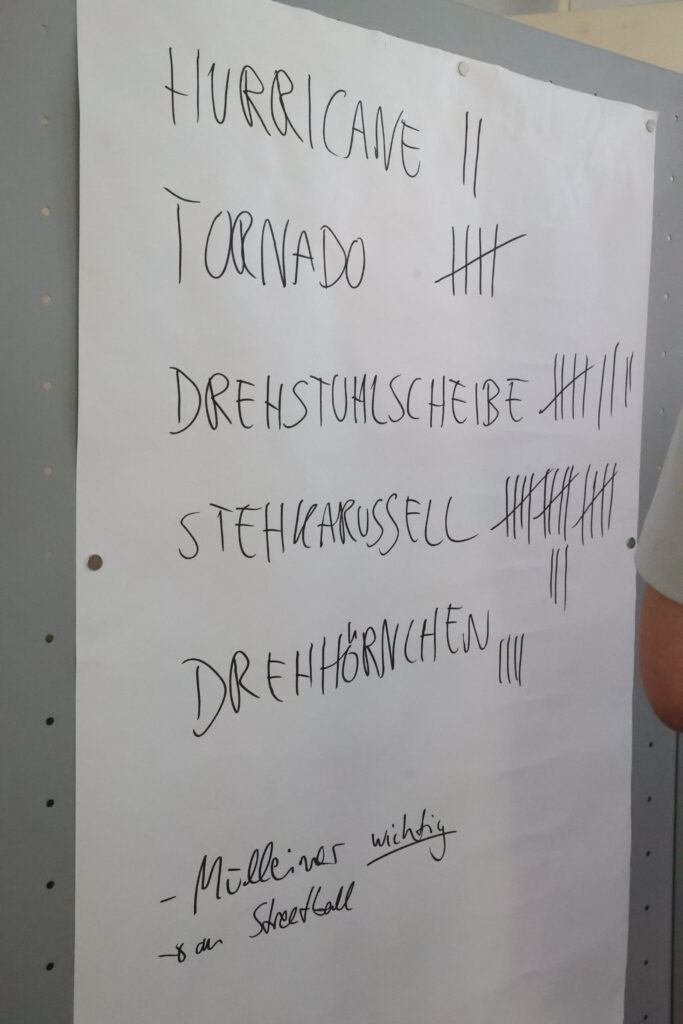 HURRICANE ||
TORNADO ||||
DREHSTUHLSCHEIBE |||| ||||
STEHKARUSSELL |||| |||| ||||
|||
DREHHÖRNCHEN ||||
- Mülleimer wichtig
an Streetball